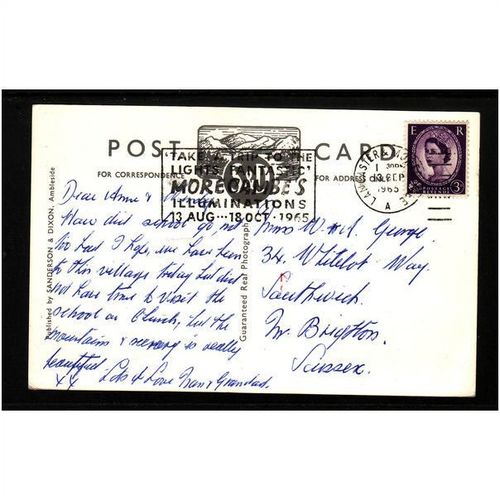 POST CARD
FOR CORRESPONDENCE
FOR ADDRESS ONLY
'TAKE A TRIP TO THE
LIGHTS FANTASTIC'
MORECAMBE'S
ILLUMINATIONS
13 AUG---18 OCT·1965
LANCASTER & MORECAMBE
13 SEP
1965
A
E R
3D
Published by SANDERSON & DIXON, Ambleside
Guaranteed Real Photograph
Dear Anne &
How did school go not
too bad I hope, we have been
to this village today but did
not have time to visit the
school or Church, but the
mountains & scenery is really
beautiful. Lots of Love Nan & Grandad.
xx
Miss W. & A. George.
34. Whitelot Way.
Southwick.
Nr. Brighton.
Sussex.